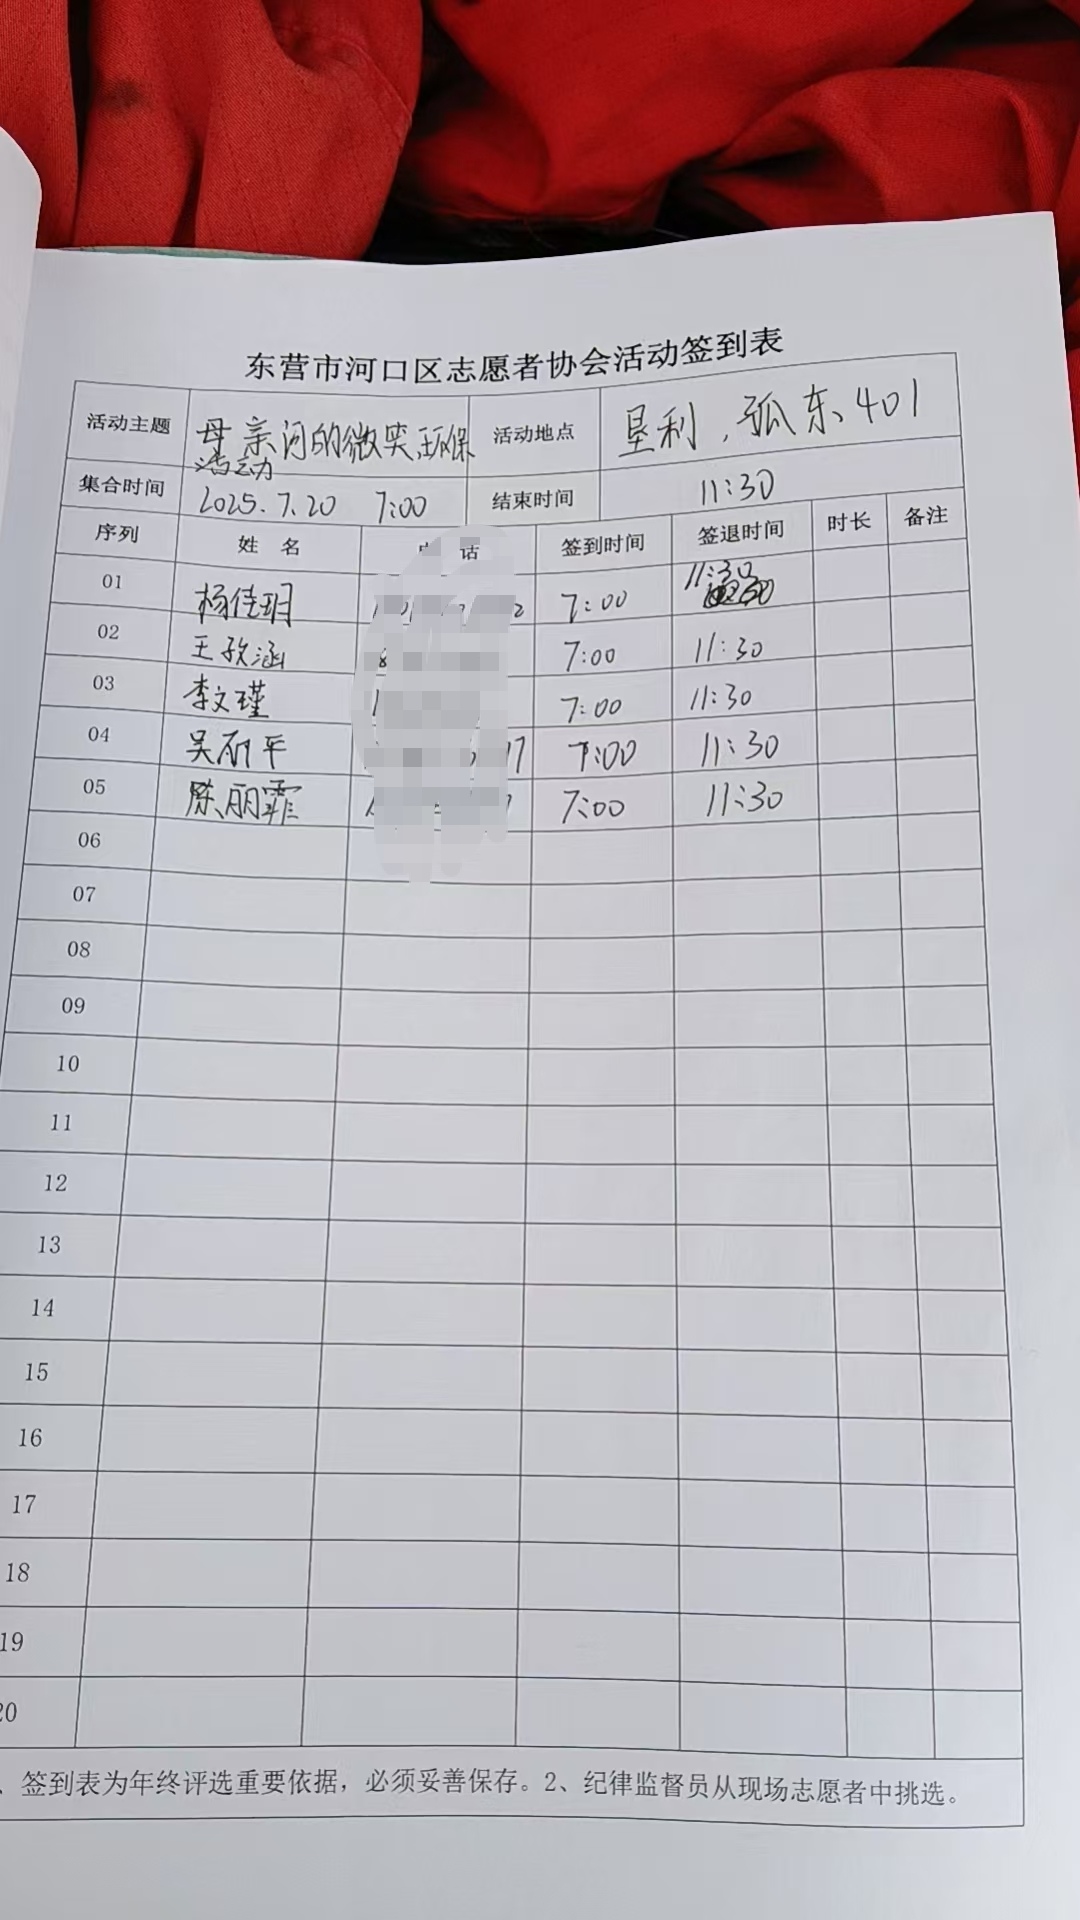 东营市河口区志愿者协会活动签到表
活动主题 母亲河的微笑环保活动 活动地点 垦利，孤东401
集合时间 2025.7.20 7:00 结束时间 11:30
序列 姓名 话 签到时间 签退时间 时长 备注
01 杨佳玥 7:00 11:30
02 王孜涵 7:00 11:30
03 李文瑾 7:00 11:30
04 吴 平 7:00 11:30
05 陈丽霏 7:00 11:30
06
07
08
09
10
11
12
13
14
15
16
17
18
19
20
、签到表为年终评选重要依据，必须妥善保存。2、纪律监督员从现场志愿者中挑选。